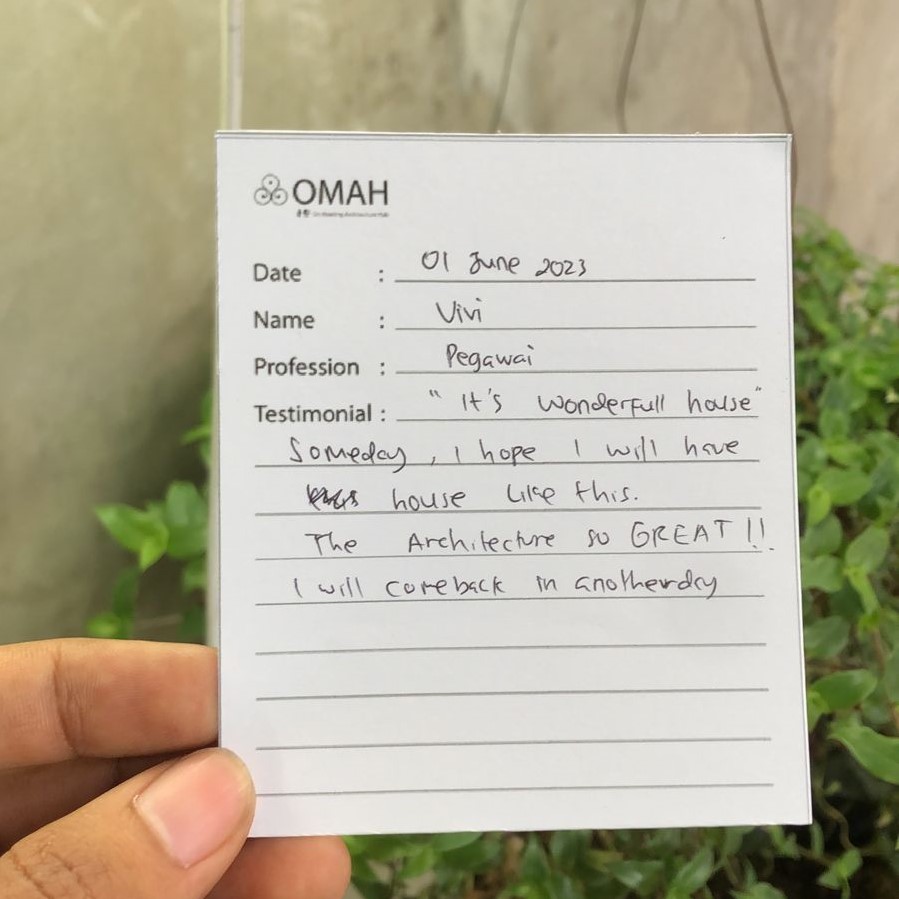 OMAH
Date : 01 June 2023
Name : Vivi
Profession : Pegawai
Testimonial : " It's wonderfull house"
Someday, I hope I will have
house like this.
The Architecture so GREAT !!.
I will comeback in anotherday